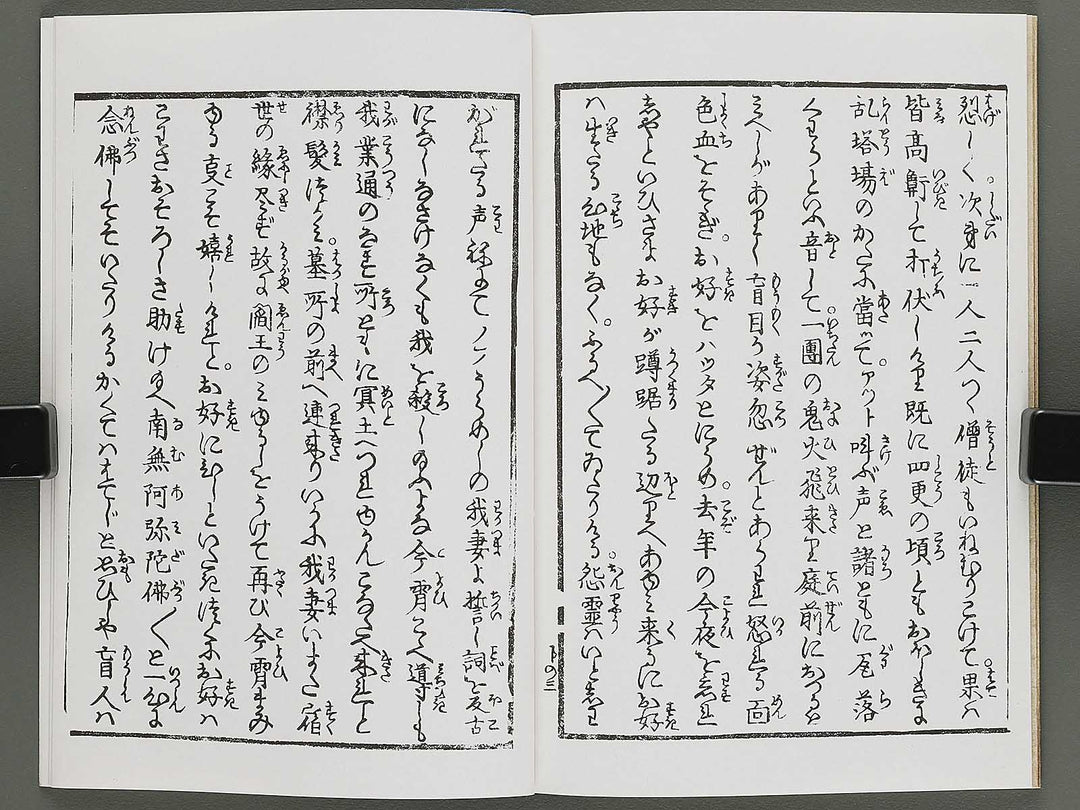 愁しく次第に一人二人つゝ僧徒もいねむりこけて果ハ
皆高鼾して打伏しけり既に四更の頃ともおぼしきに
乱塔場のかたに當ツて。アツト叫ぶ声と諸ともに瓦落
くわらといふ音して一團の鬼火飛来り庭前におつると
みへしがありし盲目が姿忽ぜんとあらはれ怒れる面
色血をそゝぎ。お好をハツタとにらめ。去年の今夜を忘れ
しやといひさまお好が蹲踞たる辺りへあゆみ来るにお好
ハ生たる心地もなく。ふるへ〳〵てゐたりける。怨霊ハいとしは
がれたる声ねにてノウうらめしの我妻よ誓し詞を反古
になしなさけなくも我を殺し給ふよな今宵こそ導きも
我業通のなす所ともに冥土へつれゆかんこなたへ来れと
襟髪つかみ。墓所の前へ連来りいふに我妻いまだ宿
世の縁尽ず故に閻王のみゆるしをうけて再び今宵まみ
ゆる事こそ嬉しけれと。お好にひしといだき佳にお好ハ
こはさおそろしさ助け給へ南無阿弥陀佛〳〵と一心に
念佛してぞいたりけるかくてハはてじと思ひしや盲人ハ
下の三